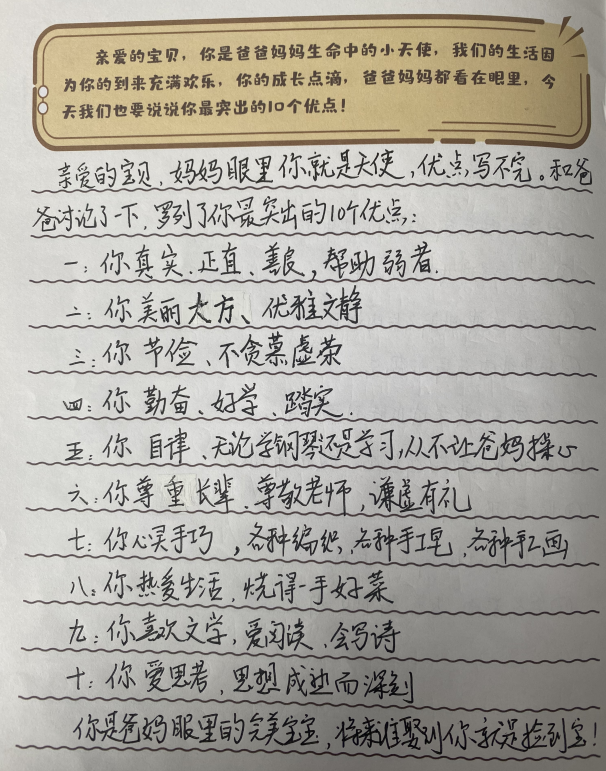 亲爱的宝贝，你是爸爸妈妈生命中的小天使，我们的生活因
为你的到来充满欢乐，你的成长点滴，爸爸妈妈都看在眼里，今
天我们也要说说你最突出的10个优点！
亲爱的宝贝，妈妈眼里你就是天使，优点写不完。和爸
爸讨论了一下，罗列了你最突出的10个优点：
一：你真实、正直、善良，帮助弱者.
二：你美丽大方、优雅文静
三：你节俭、不贪慕虚荣
四：你勤奋、好学、踏实.
五：你自律、无论学钢琴还是学习，从不让爸妈操心
六：你尊重长辈、尊敬老师，谦虚有礼
七：你心灵手巧，各种编织、各种手工、各种手工画
八：你热爱生活，烧得一手好菜
九：你喜欢文学，爱阅读、会写诗
十：你爱思考，思想成熟而深刻
你是爸妈眼里的完美宝宝，将来谁娶到你就是捡到宝！